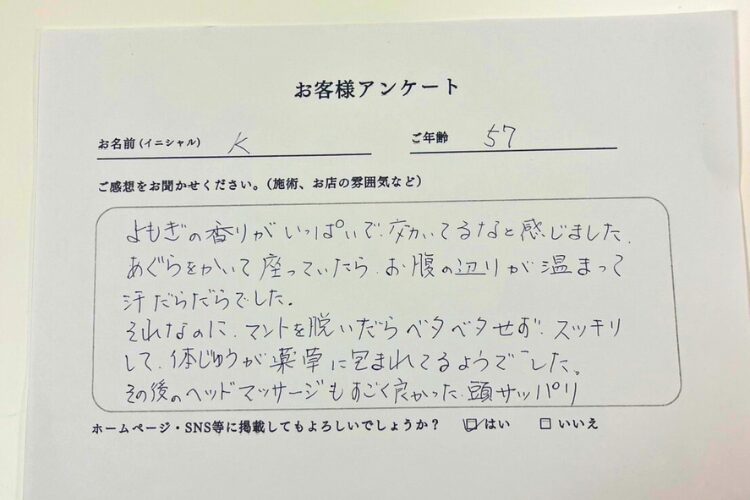 お客様アンケート
お名前(イニシャル) K ご年齢 57
ご感想をお聞かせください。(施術、お店の雰囲気など)
よもぎの香りがいっぱいで、効いてるなと感じました。
あぐらをかいて座っていたら、お腹の辺りが温まって
汗だらだらでした。
それなのに、マントを脱いだらベタベタせず、スッキリ
して、体じゅうが薬草に包まれてるようでした。
その後のヘッドマッサージもすごく良かった、頭サッパリ
ホームページ・SNS等に掲載してもよろしいでしょうか？ ☑はい □いいえ